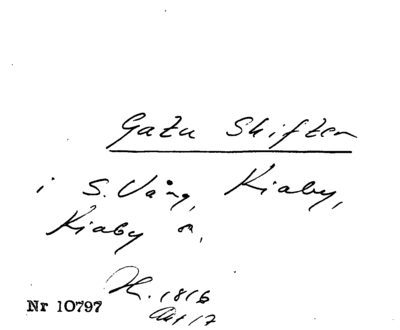 Gatu Skiften
i S. Vång, Kiaby,
Kiaby s.
H. 1816
Akt 17
Nr 10797